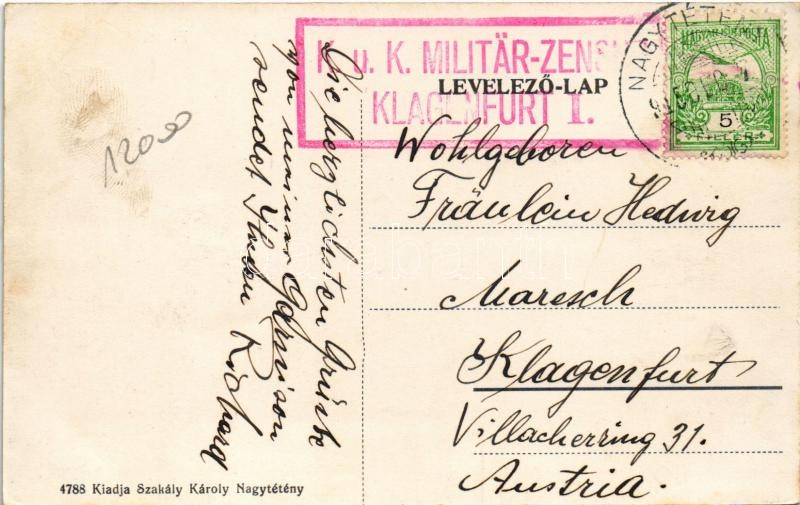 K. u. K. MILITÄR-ZENS
KLAGENFURT I.
LEVELEZŐ-LAP
NAGYTÉTÉNY
MAGYAR KIR. POSTA
5
FILLÉR
12000
Die herzlichsten Grüsse
von meiner Garnison
sendet Ihnen Richard
Wohlgeboren
Fräulein Hedwig
Maresch
Klagenfurt
Villacherring 31.
Austria.
4788 Kiadja Szakály Károly Nagytétény